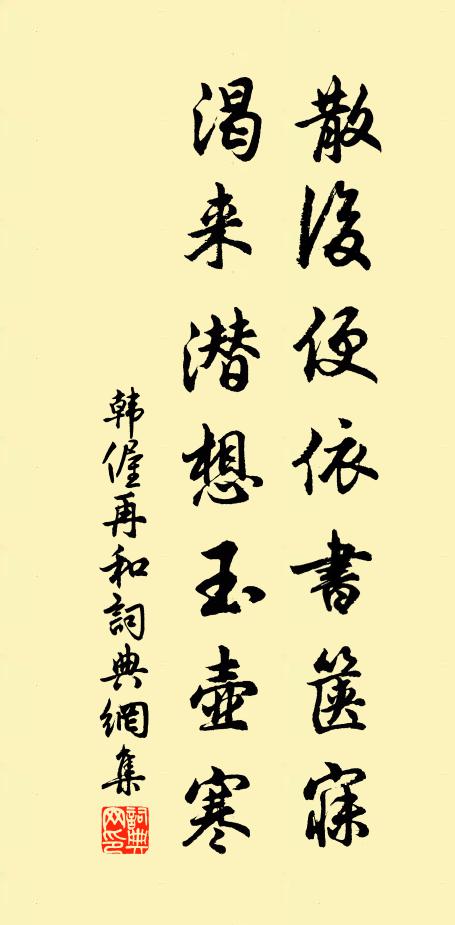 散後便依書篋寐
渴来潜想玉壺寒
韓偓再和詞典網集
詞典網印